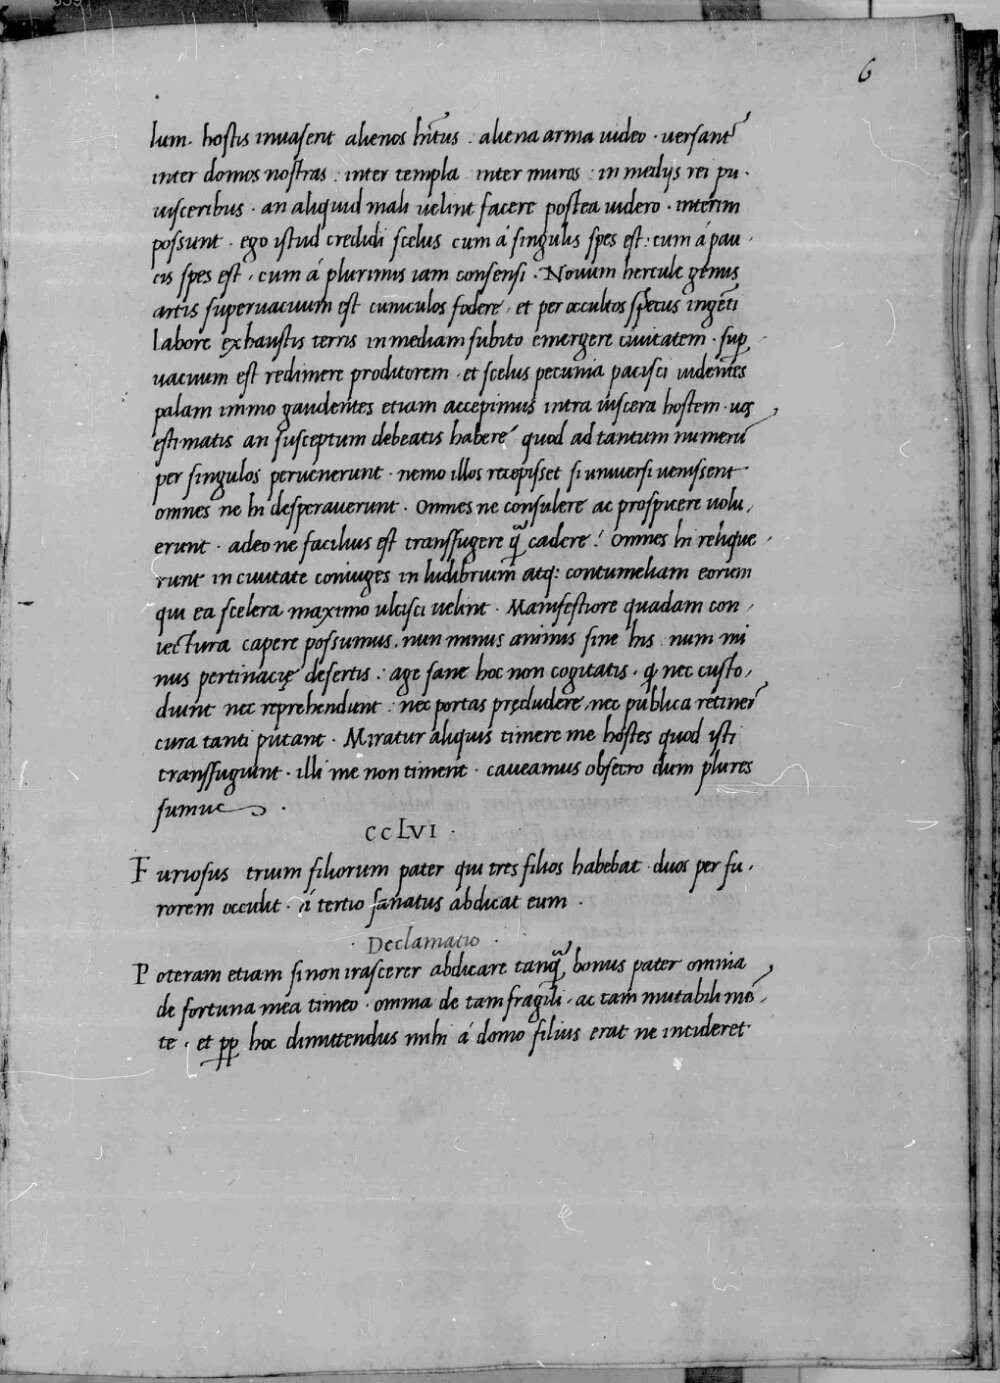 6
lum. hostis inuaserit alienos hr̃tus. aliena arma uideo. uersant̃
inter domos nostras. inter templa inter muros. in medijs rei pu.
uisceribus. an aliquid mali uelint facere postea uidero. interim
possunt. ego istud credidi scelus cum á singulis spes est: cum á pau,
cis spes est, cum á plurimis iam consensi. Nouum hercule genus
artis superuacuum est cuniculos fodere, et per occultos specus ingẽti
labore exhaustis terris in mediam subito emergere ciuitatem. suꝑ
uacuum est redimere proditorem. et scelus pecunia pacisci uidentes
palam immo gaudentes etiam accepimus intra uiscera hostem. uos
estimatis an susceptum debeatis habere quod ad tantum numerũ
per singulos peruenerunt. nemo illos recepisset si uniuersi uenissent
omnes ne hi desperauerunt. Omnes ne consulere ac prospicere uolu,
erunt. adeo ne facilius est transfugere q̃ cadere! Omnes hi relique,
runt in ciuitate coniuges in ludibrium atq: contumeliam eorum
qui ea scelera maximo ulcisci uelint. Manifestiore quadam con,
iectura capere possumus. nun minus animis sine his num mi
nus pertinacię desertis: age sane hoc non cogitatis. q̃ nec custo,
diunt nec reprehendunt. nec portas pręcludere, nec publica retiner̃
cura tanti putant. Miratur aliquis timere me hostes quod isti
transfugiunt. illi me non timent. caueamus obsecro dum plures
sumus.
CCLVI.
Furiosus trium filiorum pater qui tres filios habebat duos per fu,
rorem occidit. á tertio sanatus abdicat eum.
. Declamatio.
Poteram etiam si non irascerer abdicare tanq̃ bonus pater omnia
de fortuna mea timeo. omnia de tam fragili, ac tam mutabili mẽ,
te. et ꝑꝑ hoc dimittendus mihi á domo filius erat ne incideret